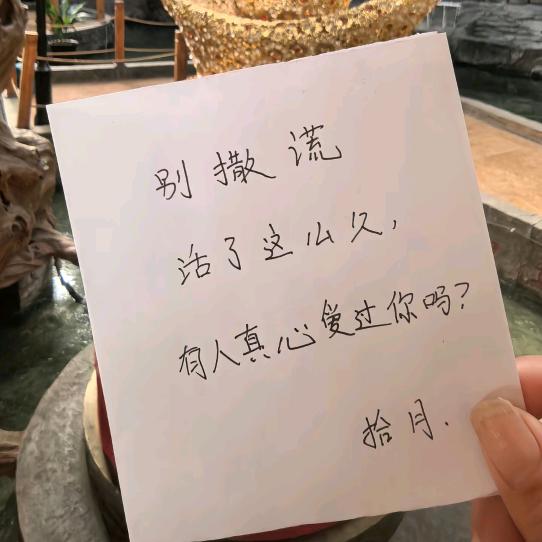 别撒谎
活了这么久,
有人真心爱过你吗?
拾月.